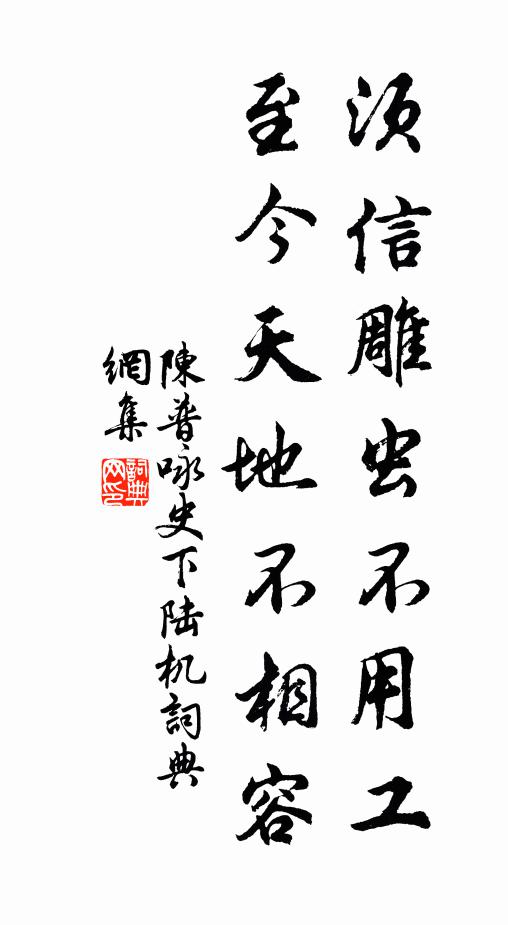 须信雕虫不用工
至今天地不相容
陳普咏史下陆机詞典
網集
詞典
网印